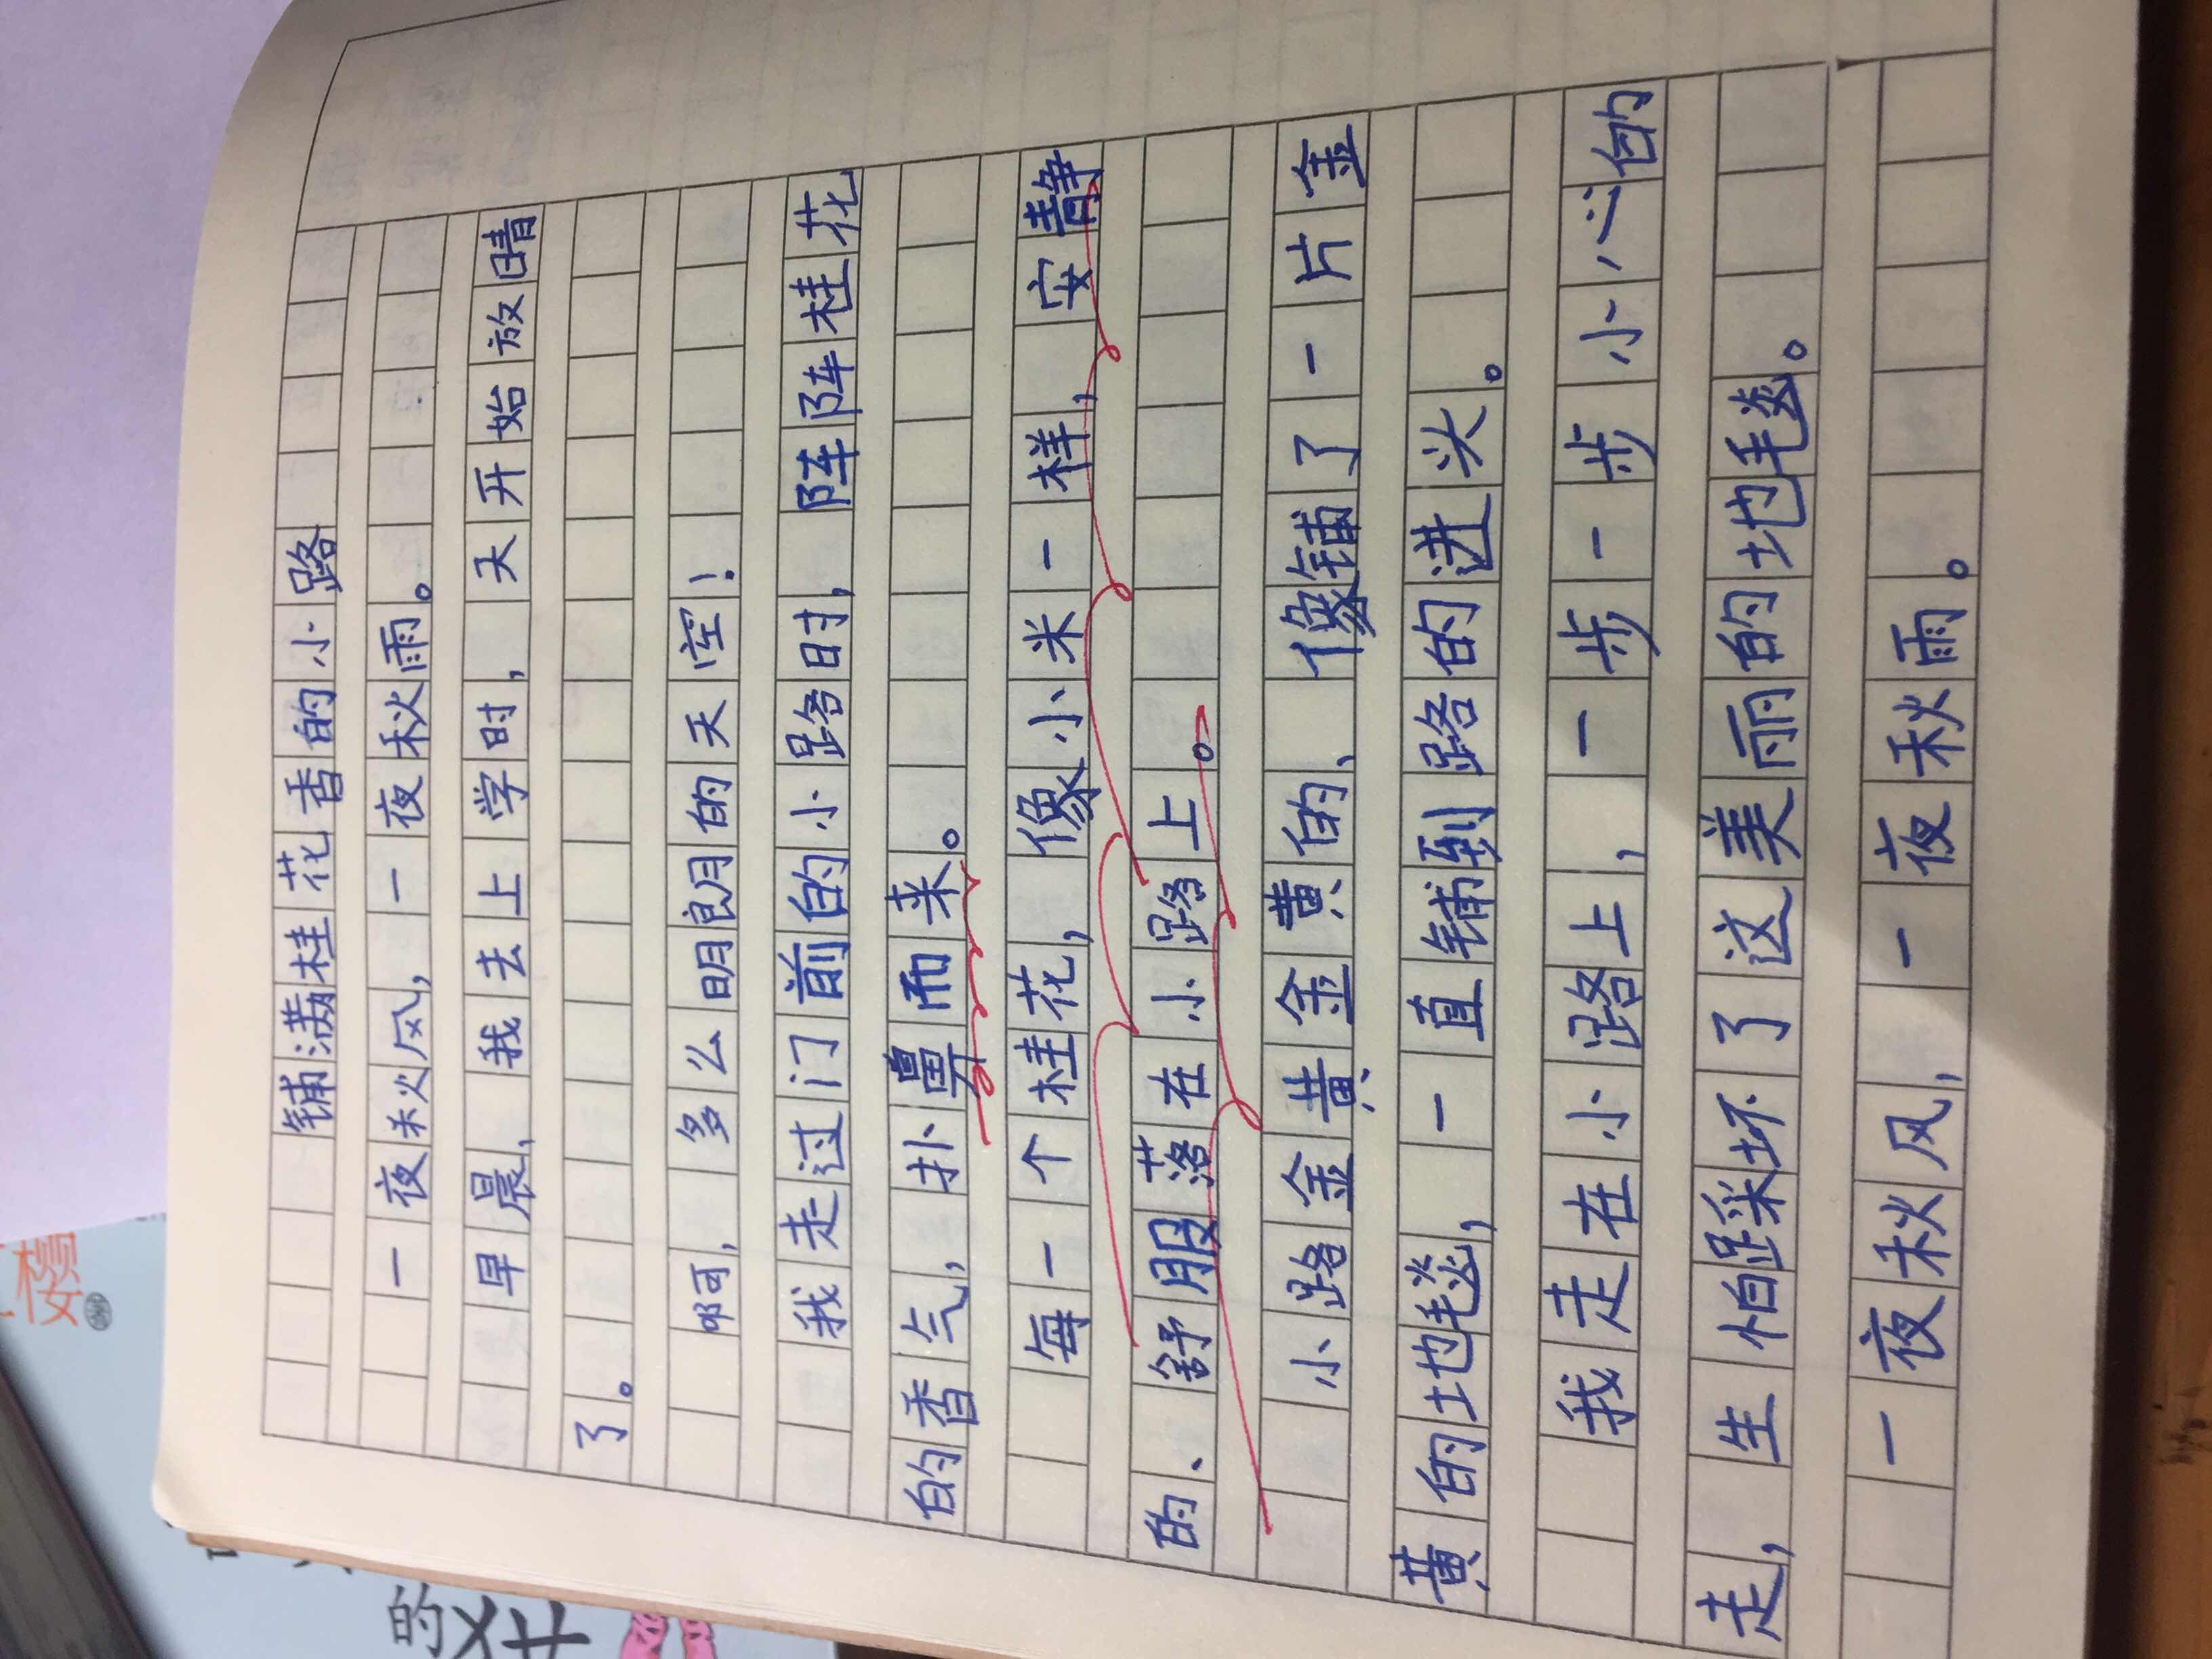 铺满桂花香的小路
一夜秋风，一夜秋雨。
早晨，我去上学时，天开始放晴
了。
啊，多么明朗的天空！
我走过门前的小路时，阵阵桂花
的香气，扑鼻而来。
每一个桂花，像小米一样，安静
的、舒服落在小路上。
小路金黄金黄的、像铺了一片金
黄的地毯，一直铺到路的进头。
我走在小路上，一步一步小心的
走，生怕踩坏了这美丽的地毯。
一夜秋风，一夜秋雨。
樱
的